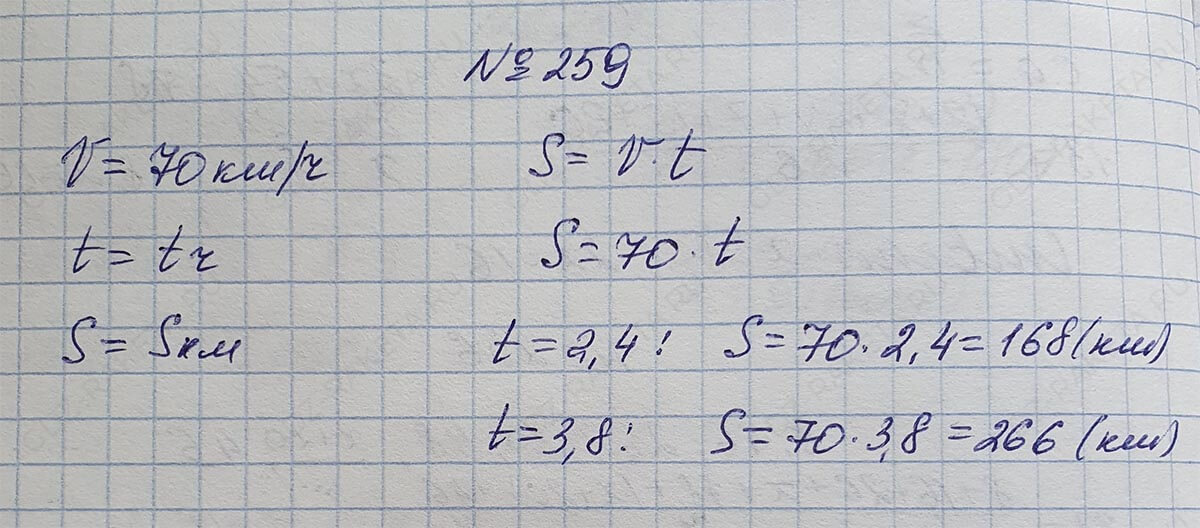 № 259
V = 70 км/ч S = V · t
t = t ч S = 70 · t
S = S км t = 2,4: S = 70 · 2,4 = 168 (км)
t = 3,8: S = 70 · 3,8 = 266 (км)